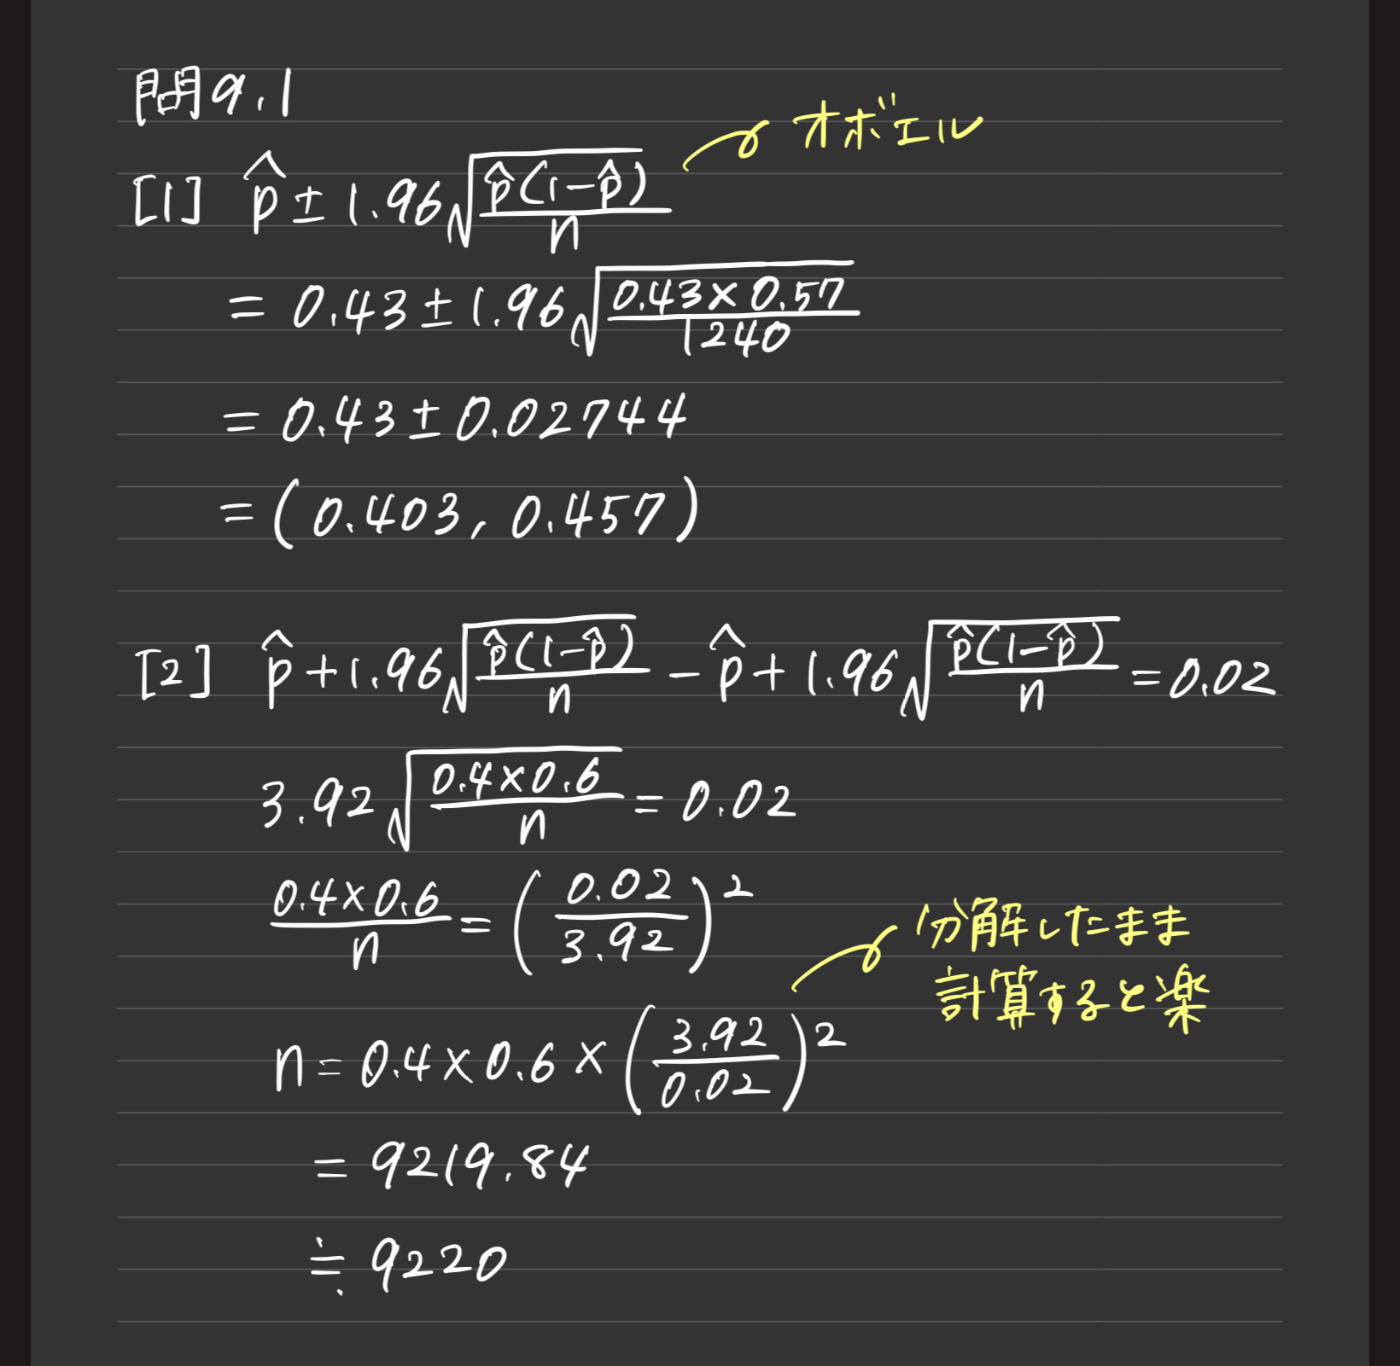 問9.1
オボエル
[1] p̂ ± 1.96√(p̂(1-p̂)/n)
= 0.43 ± 1.96√(0.43×0.57/1240)
= 0.43 ± 0.02744
= (0.403, 0.457)
[2] p̂ + 1.96√(p̂(1-p̂)/n) - p̂ + 1.96√(p̂(1-p̂)/n) = 0.02
3.92√(0.4×0.6/n) = 0.02
0.4×0.6/n = (0.02/3.92)²
分解したまま
計算すると楽
n = 0.4×0.6×(3.92/0.02)²
= 9219.84
≒ 9220